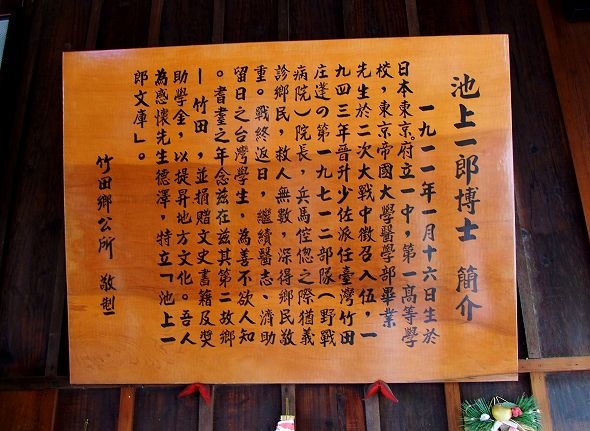 池上一郎博士 簡介
一九一一年一月十六日生於
日本東京。府立一中，第一高等學
校，東京帝國大學醫學部畢業
先生於二次大戰中徵召入伍，一
九四三年晉升少佐派任臺灣竹田
庄逹の第一九七一二部隊（野戰
病院）院長，兵馬倥偬之際猶義
診鄉民，救人無數，深得鄉民敬
重。戰終返日，繼續醫志、濟助
留日之台灣學生，為善不欲人知
。耆耋之年念兹在兹其第二故鄉
—竹田—，並捐贈文史書籍及奬
助學金，以提昇地方文化。吾人
為感懷先生德澤，特立「池上一
郎文庫」。
竹田鄉公所 敬製